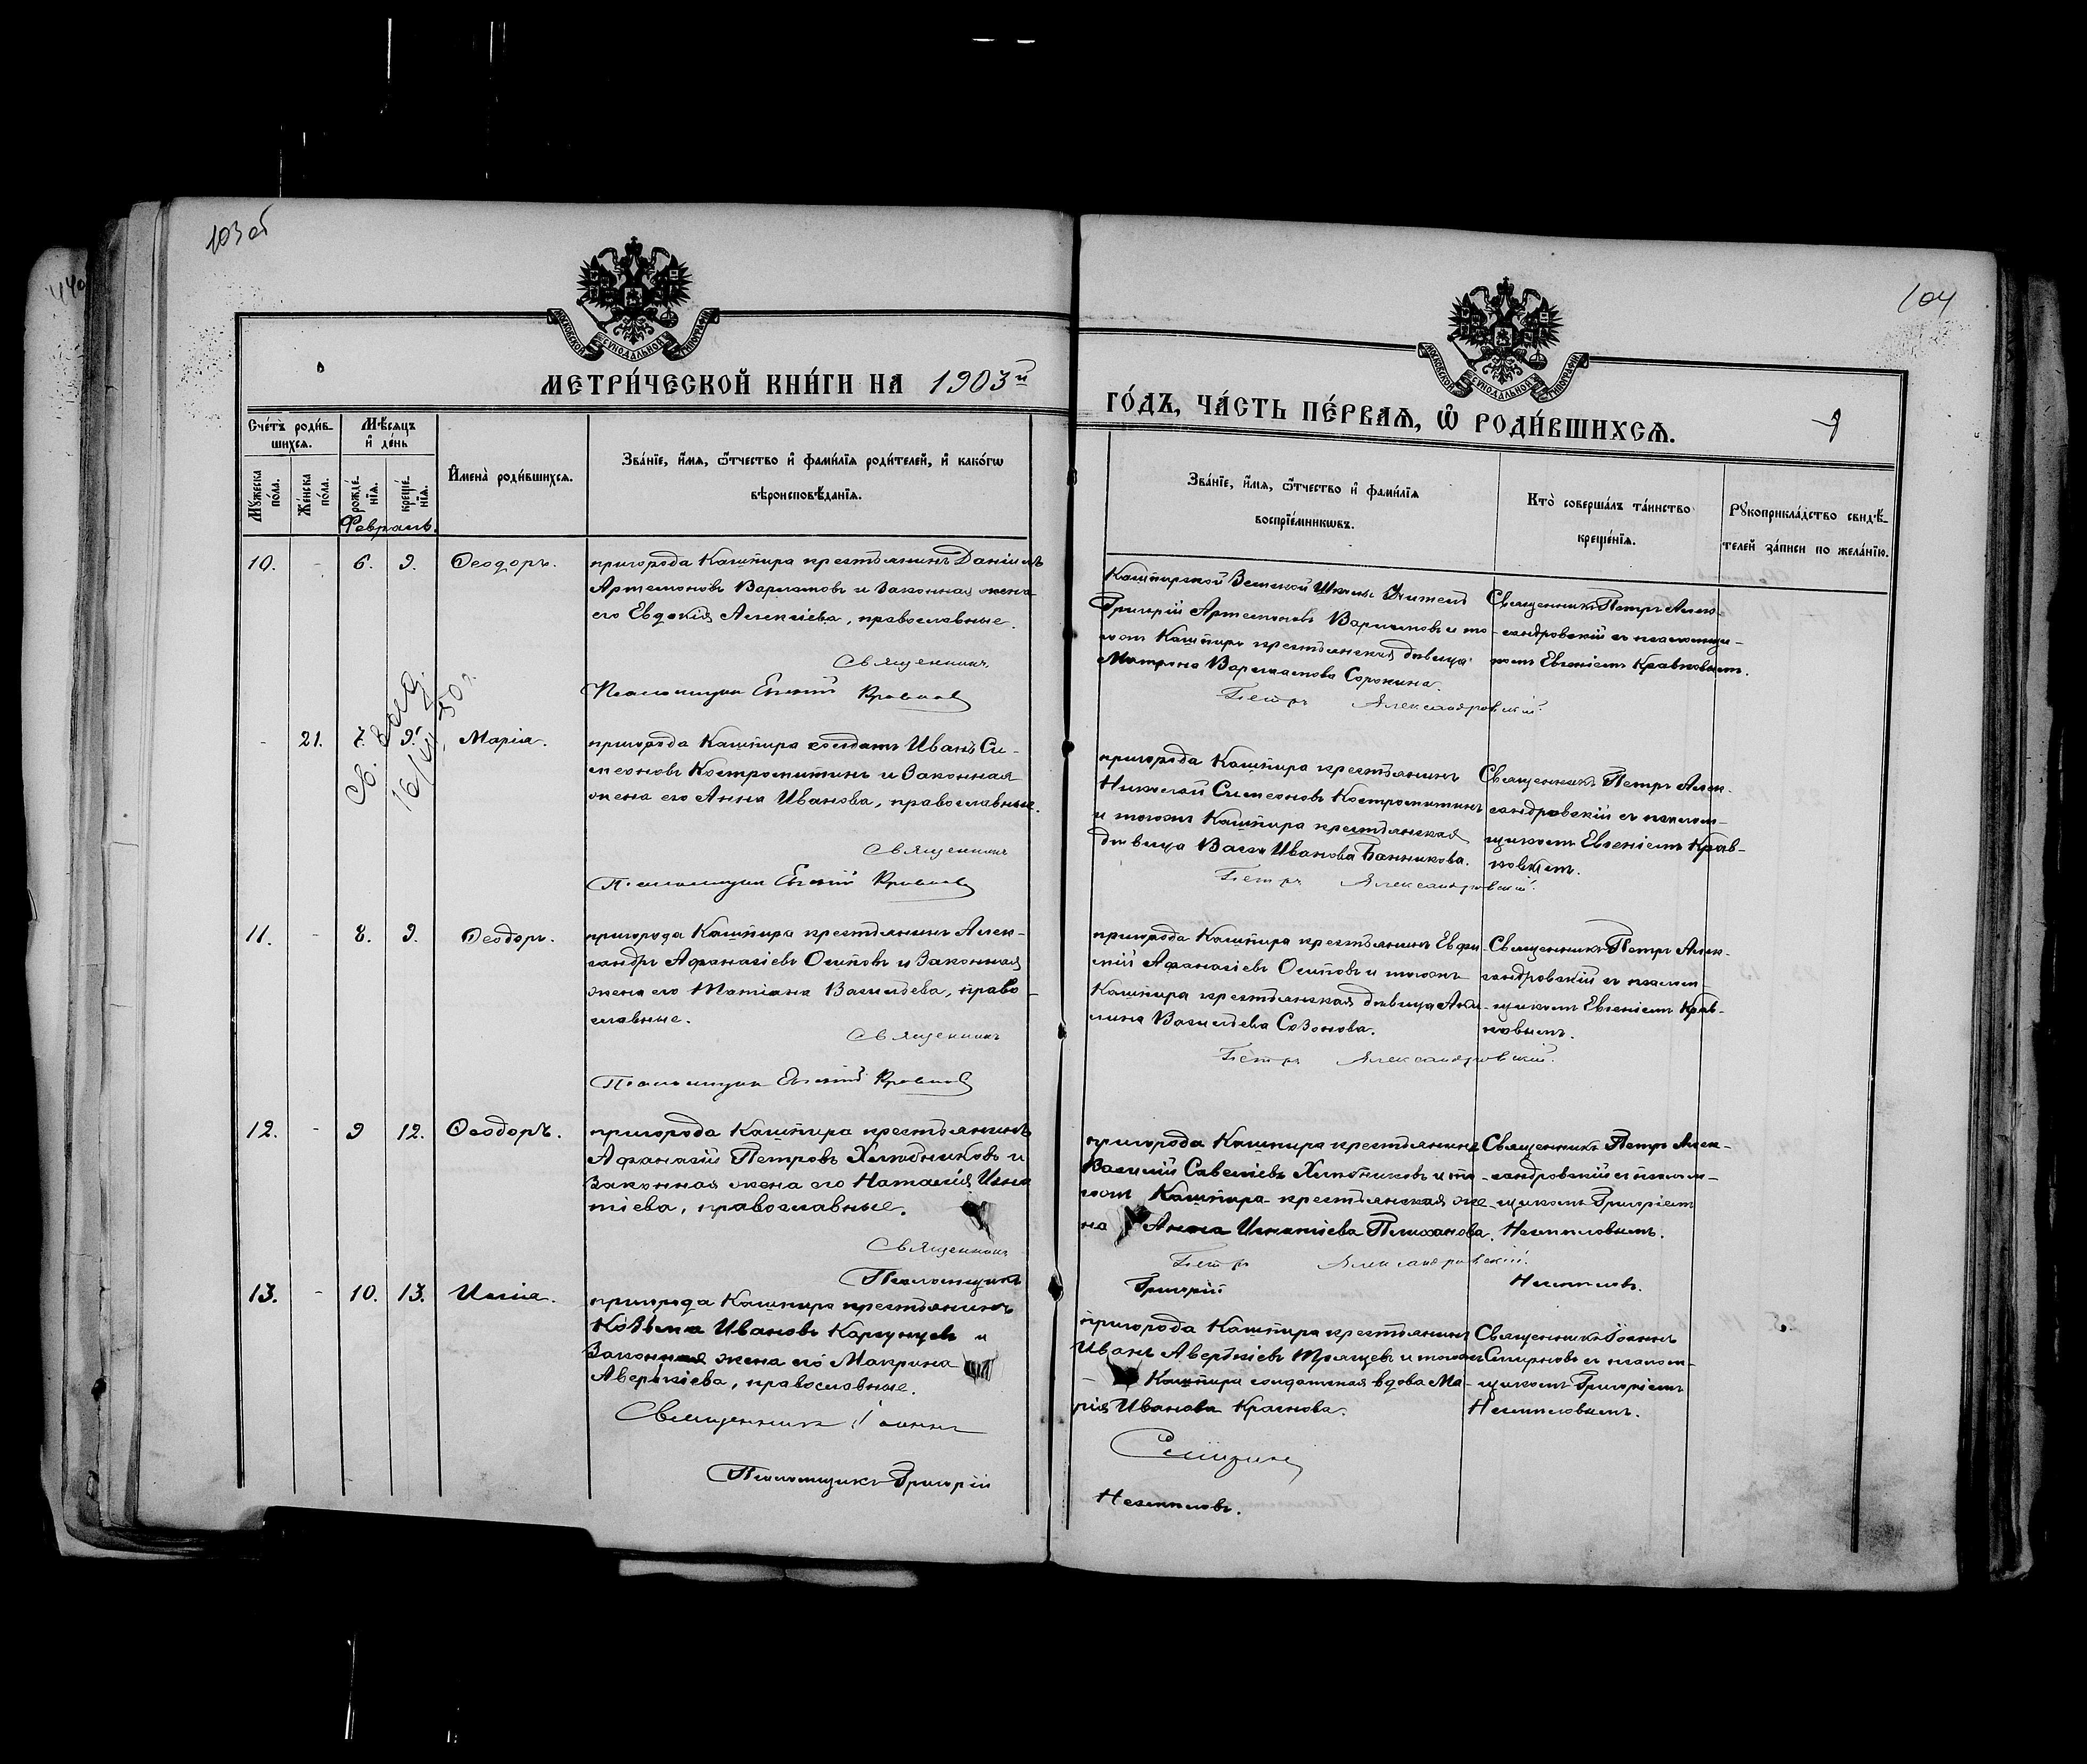 103 об
440
104
МОСКОВСКОЙ СУНОДАЛЬНОЙ ТИПОГРАФІИ
МОСКОВСКОЙ СУНОДАЛЬНОЙ ТИПОГРАФІИ
МЕТРИ́ЧЕСКОЙ КНИ́ГИ НА 1903й
ГО́ДЪ, ЧА́СТЬ ПЕ́РВАѦ, Ѡ҆ РОДИ́ВШИХСѦ.
Сче́тъ роди́в-
шихсѧ.
Мѣ́сѧцъ
и҆ де́нь
Мꙋ́жеска
по́ла.
Же́нска
по́ла.
рожде́-
нїѧ.
креще́-
нїѧ.
И҆мена̀ роди́вшихсѧ.
Зва́нїе, и҆́мѧ, ѻ҆́тчество и҆ фами́лїѧ роди́телей, и҆ како́гѡ
вѣроисповѣ́данїѧ.
Зва́нїе, и҆́мѧ, ѻ҆́тчество и҆ фами́лїѧ
воспрїе́мникѡвъ.
Кто̀ соверша́лъ та́инство
креще́нїѧ.
Рꙋкоприкла́дство свидѣ́-
телей за́писи по жела́нїю.
Февраль.
10. - 6. 9. Ѳеодоръ.
пригорода Кашпира крестьянинъ Даніилъ
Артемоновъ Варламовъ и законная жена
его Евдокія Алексіева, православные.
Священникъ
Псаломщик Евгеній Кравковъ
Кашпирской Земской Школы Учитель
Григорій Артемоновъ Варламовъ и то-
гоже Кашпира крестьянская дѣвица
Матрона Варлаамова Сорокина.
Петръ Александровскій.
Священникъ Петръ Алек-
сандровскій съ псаломщи-
комъ Евгеніемъ Кравковымъ.
- 21. 7. 9. Марія.
16/VII 50г.
пригорода Кашпира солдатъ Иванъ Си-
меоновъ Костромитинъ и законная
жена его Анна Иванова, православные.
Священникъ
Псаломщик Евгеній Кравковъ
пригорода Кашпира крестьянинъ
Николай Симеоновъ Костромитинъ
и тогоже Кашпира крестьянская
дѣвица Васса Иванова Банникова.
Петръ Александровскій.
Священникъ Петръ Алек-
сандровскій съ псалом-
щикомъ Евгеніемъ Крав-
ковымъ.
11. - 8. 9. Ѳеодоръ.
пригорода Кашпира крестьянинъ Алек-
сандръ Афанасіевъ Осиповъ и законная
жена его Татіана Васильева, право-
славные.
Священникъ
Псаломщик Евгеній Кравковъ
пригорода Кашпира крестьянинъ Евфи-
мій Афанасіевъ Осиповъ и тогоже
Кашпира крестьянская дѣвица Аки-
лина Васильева Созонова.
Петръ Александровскій.
Священникъ Петръ Алек-
сандровскій съ псалом-
щикомъ Евгеніемъ Крав-
ковымъ.
12. - 9 12. Ѳеодоръ.
пригорода Кашпира крестьянинъ
Афанасій Петровъ Хлѣбниковъ и
законная жена его Наталія Игна
тіева, православные.
Священникъ
Псаломщикъ
пригорода Кашпира крестьянинъ
Василій Савеліевъ Хлѣбниковъ и то-
гоже Кашпира крестьянская же-
на Анна Игнатіева Плиханова.
Петръ Александровскій.
Григорій Несмѣловъ.
Священникъ Петръ Алек-
сандровскій съ псалом-
щикомъ Григоріемъ
Несмѣловымъ.
13. - 10. 13. Илія.
пригорода Кашпира крестьянинъ
Козьма Ивановъ Карсунцевъ и
законная жена его Макрина
Аверкіева, православные.
Священникъ Іоаннъ
Псаломщикъ Григорій
пригорода Кашпира крестьянинъ
Иванъ Аверкіевъ и тогоже
Кашпира солдатская вдова Ма-
рія Иванова Краснова.
Смирновъ
Несмѣловъ.
Священникъ Іоаннъ
Смирновъ съ псалом-
щикомъ Григоріемъ
Несмѣловымъ.